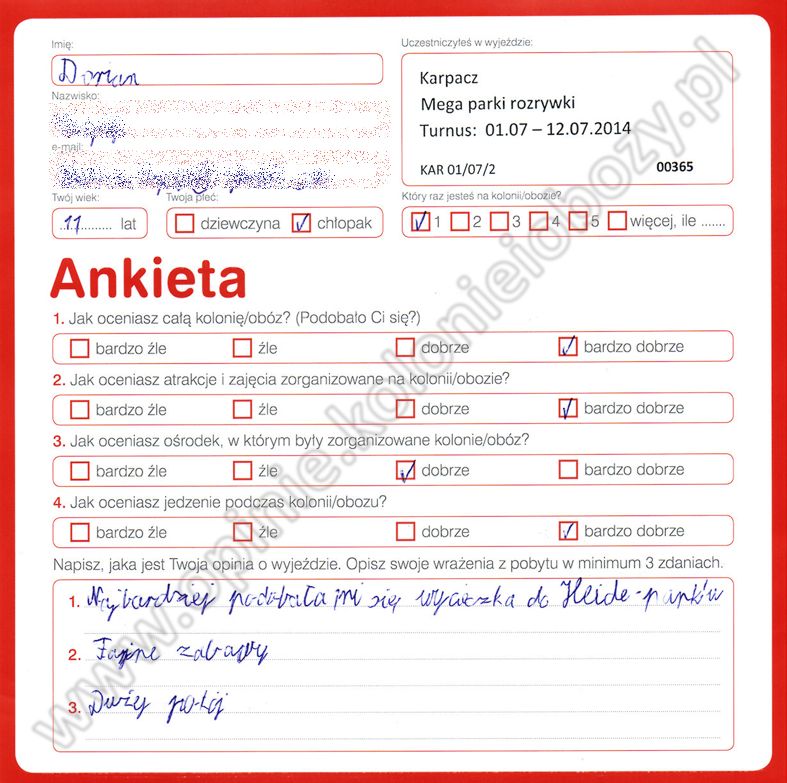 Imię:
Dorian
Uczestniczyłeś w wyjeździe:
Karpacz
Mega parki rozrywki
Turnus: 01.07 – 12.07.2014
KAR 01/07/2 00365
Nazwisko:
e-mail:
Twój wiek:
11 lat
Twoja płeć:
dziewczyna chłopak
Który raz jesteś na kolonii/obozie?
1 2 3 4 5 więcej, ile .......
Ankieta
1. Jak oceniasz całą kolonię/obóz? (Podobało Ci się?)
bardzo źle źle dobrze bardzo dobrze
2. Jak oceniasz atrakcje i zajęcia zorganizowane na kolonii/obozie?
bardzo źle źle dobrze bardzo dobrze
3. Jak oceniasz ośrodek, w którym były zorganizowane kolonie/obóz?
bardzo źle źle dobrze bardzo dobrze
4. Jak oceniasz jedzenie podczas kolonii/obozu?
bardzo źle źle dobrze bardzo dobrze
Napisz, jaka jest Twoja opinia o wyjeździe. Opisz swoje wrażenia z pobytu w minimum 3 zdaniach.
1. Najbardziej podobała mi się wycieczka do Heide-parków
2. Fajne zabawy
3. Duży pokój
www.opinie.kolonieiobozy.pl